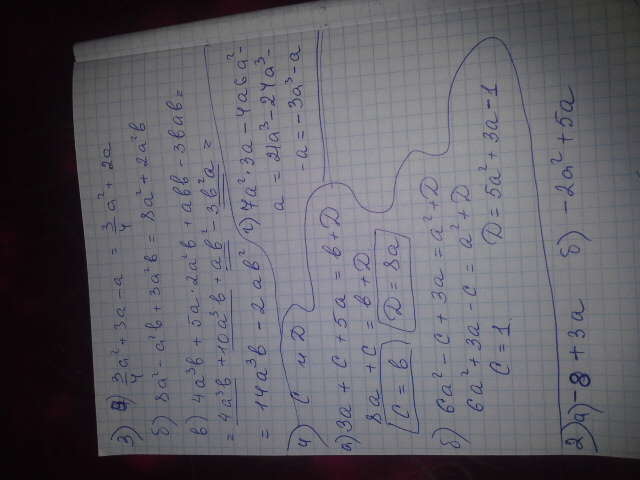 3) а) 3/4a² + 3a - a = 3/4a² + 2a
б) 8a² - a²b + 3a²b = 8a² + 2a²b
в) 4a³b + 5a·2a²b + abb - 3bab =
= 4a³b + 10a³b + ab² - 3b²a =
= 14a³b - 2ab²
г) 7a²·3a - 4a6a² -
a = 21a³ - 24a³ -
- a = -3a³ - a
4) C и D
а) 3a + C + 5a = b + D
8a + C = b + D
C = b D = 8a
б) 6a² - c + 3a = a² + D
6a² + 3a - c = a² + D
C = 1 D = 5a² + 3a - 1
2) а) -8 + 3a б) -2a² + 5a